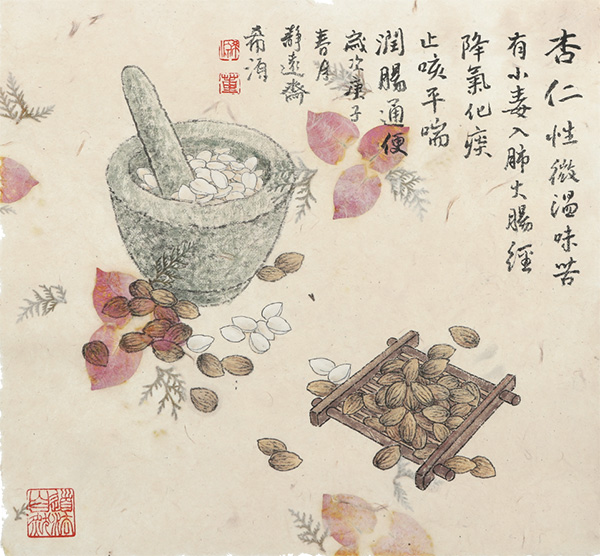 杏仁性微温味苦
有小毒入肺大腸經
降氣化痰
止咳平喘
潤腸通便
歲次庚子
春月
靜遠齋
希
道法自然